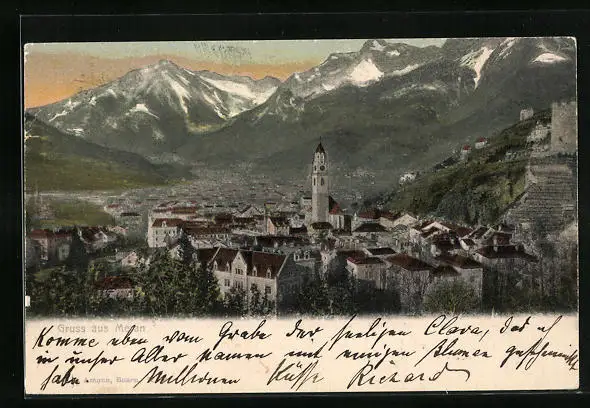 Gruss aus Meran
Komme eben vom Grabe der seeligen Clara, das ich
in unser Aller Namen mit einigen Blumen geschmückt
habe. Millionen Küsse Richard
Amonn, Bozen